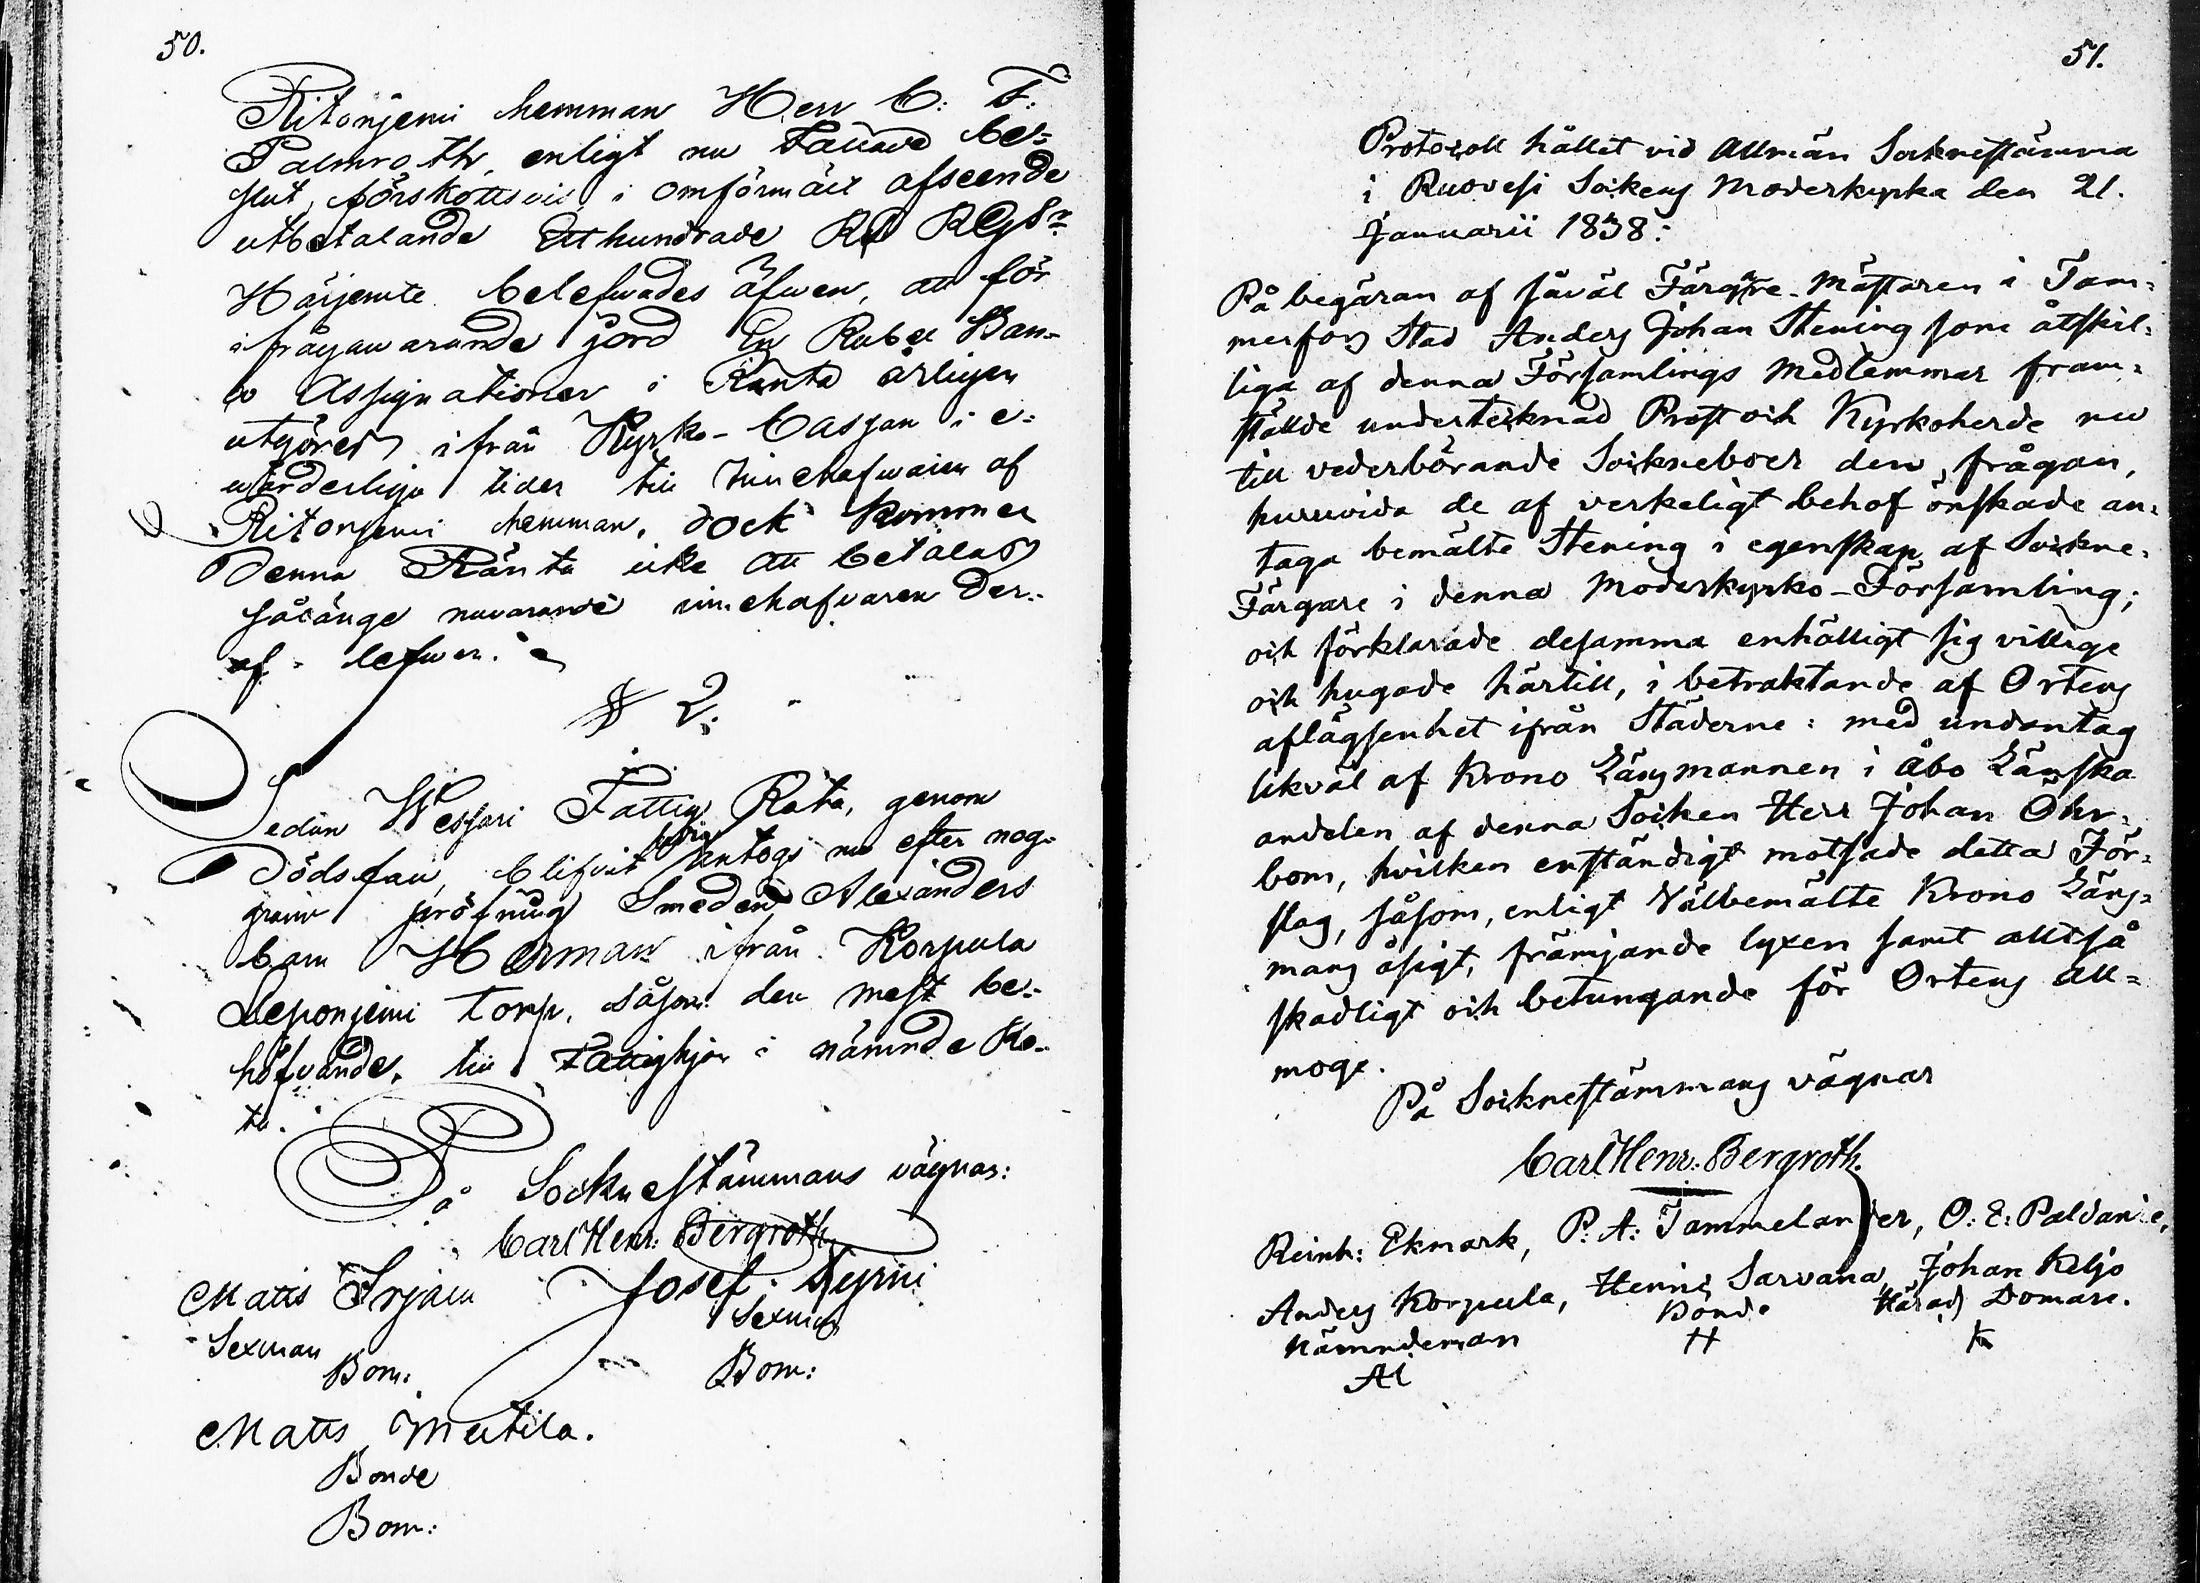 50.
Ritonjemi hemman Herr C: F:
Palmroth, enligt nu fattade be-
slut, förskottsvis i omförmält afseende
utbetalande Ett hundrade Rd Rgs
Härjemte belefwades äfwen, att för
ifrågawarande jord En Rubel Ban-
co Assignationer i Ränta årligen
utgöres ifrån Kyrko-Cassan i e-
wärderliga tider till innehafwaren af
Ritonjemi hemman, dock kommer
denna Ränta icke att betalas
sålänge nuvarande innehafvaren der-
af lefwer.
§ 2.
Sedan Wessari Fattig Rota, genom
dödsfall, blifvit ledig antogs nu efter nog-
grann pröfning Smeden Alexanders
barn Herman ifrån Korpula
Leponjemi torp, såsom den mest be-
höfvande, till Fattighjon i nämnde Ro-
ta.
På Sockne stämmans vägnar:
Carl Henr: Bergroth
Matts Irjala Josef Kyrni
Sexman Sexman
Bom: Bom:
Matts Mutila.
Bonde
Bom:
51.
Protocoll hållet vid Allmän Sockenstämma
i Ruovesi Sockens Moderkyrka den 21.
Januarii 1838:
På begäran af såväl Färgare-Mästaren i Tam-
merfors Stad Anders Johan Stening som åtskil-
liga af denna Församlings Medlemmar fram-
stälde undertecknad Prost och Kyrkoherde nu
till vederbörande Sockneboer den frågan,
huruvida de af verkeligt behof önskade an-
taga bemälte Stening i egenskap af Sockne-
Färgare i denna Moderkyrko-Församling;
och förklarade desamma enhälligt sig villige
och hugade härtill, i betraktande af Ortens
aflägsenhet ifrån Städerne: med undantag
likväl af Krono Länsmannen i Åbo Länska
andelen af denna Socken Herr Johan Öhr-
bom, hvilken enständigt motsade detta För-
slag, såsom, enligt Välbemälte Krono Läns-
mans åsigt, främjande lyxen samt alltså
skadligt och betungande för Ortens All-
moge.
På Socknestämmans vägnar
Carl Henr: Bergroth.
Reinh: Ekmark, P: A: Tammelander, O: E: Paldani
Anders Korpula, Henric Sarvana, Johan Keljo
Nämndeman Bonde Härads Domare.